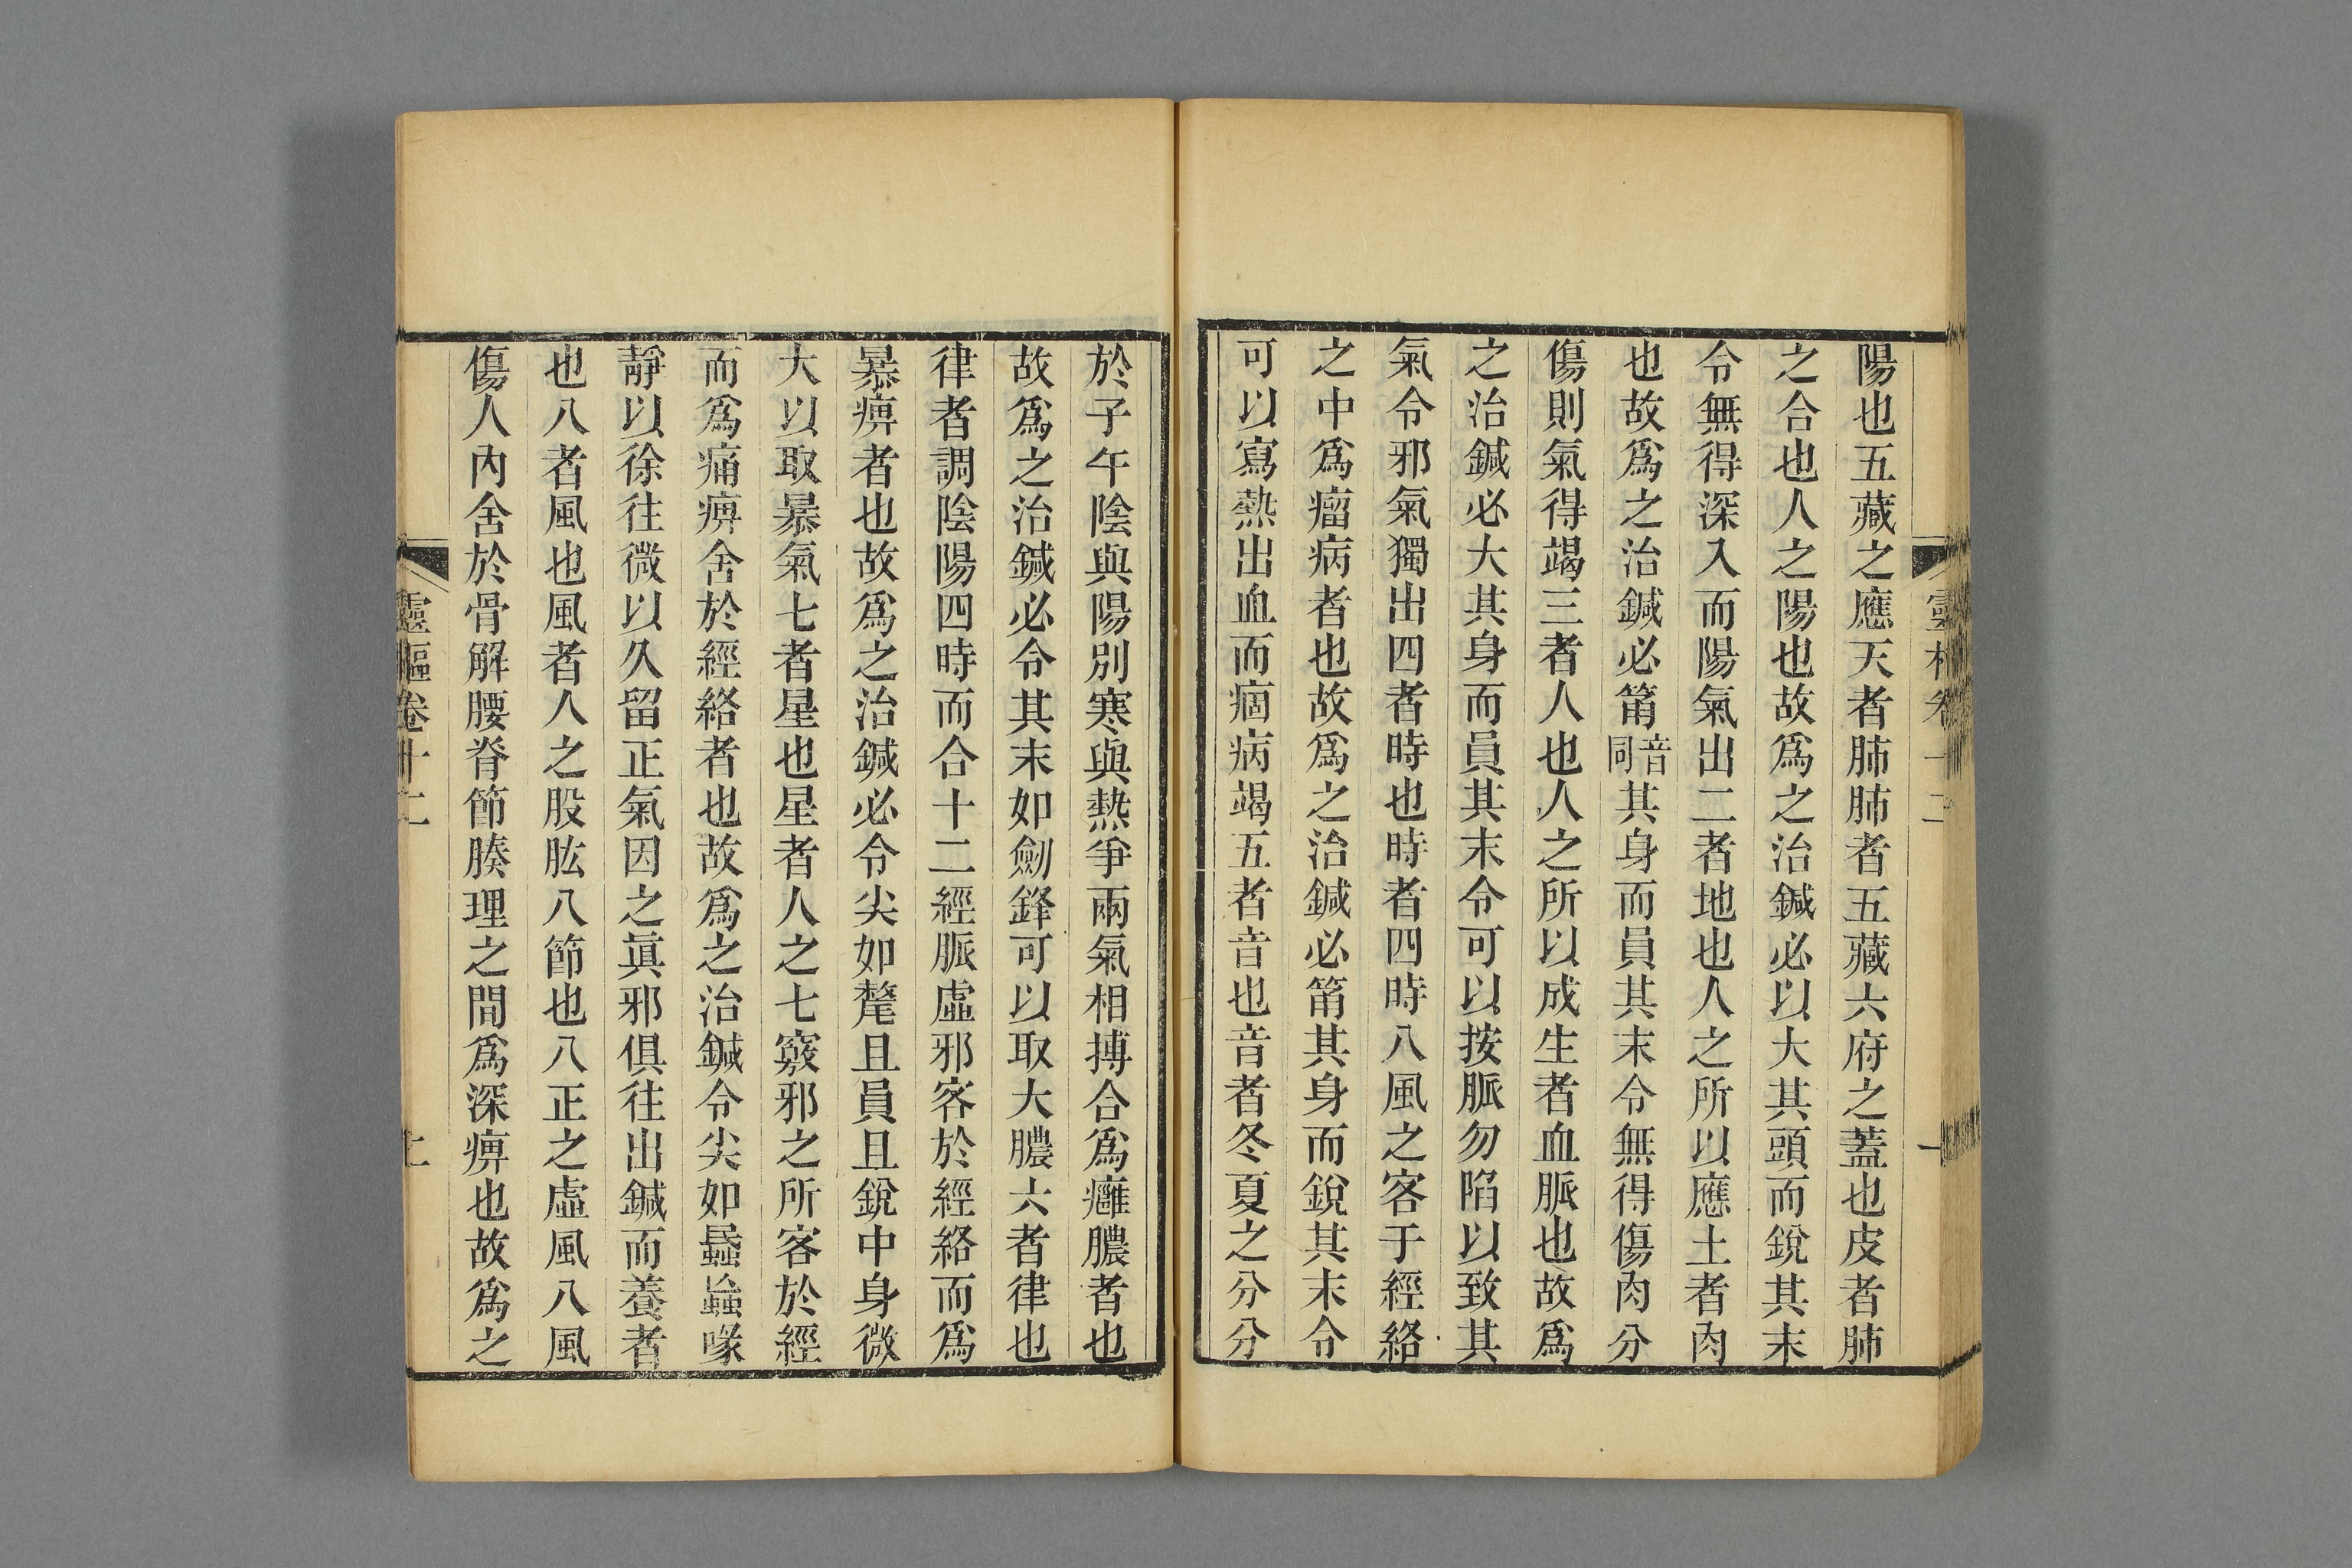 陽也五藏之應天者肺肺者五藏六府之蓋也皮者肺
之合也人之陽也故爲之治鍼必以大其頭而銳其末
令無得深入而陽氣出二者地也人之所以應土者肉
也故爲之治鍼必筩音同其身而員其末令無得傷肉分
傷則氣得竭三者人也人之所以成生者血脈也故爲
之治鍼必大其身而員其末令可以按脈勿陷以致其
氣令邪氣獨出四者時也時者四時八風之客于經絡
之中爲瘤病者也故爲之治鍼必筩其身而銳其末令
可以寫熱出血而痼病竭五者音也音者冬夏之分分
於子午陰與陽別寒與熱爭兩氣相搏合爲癰膿者也
故爲之治鍼必令其末如劒鋒可以取大膿六者律也
律者調陰陽四時而合十二經脈虛邪客於經絡而爲
暴痹者也故爲之治鍼必令尖如氂且員且銳中身微
大以取暴氣七者星也星者人之七竅邪之所客於經
而爲痛痹舍於經絡者也故爲之治鍼令尖如蟁䖟喙
靜以徐往微以久留正氣因之眞邪俱往出鍼而養者
也八者風也風者人之股肱八節也八正之虛風八風
傷人內舍於骨解腰脊節腠理之間爲深痹也故爲之
靈樞卷十二